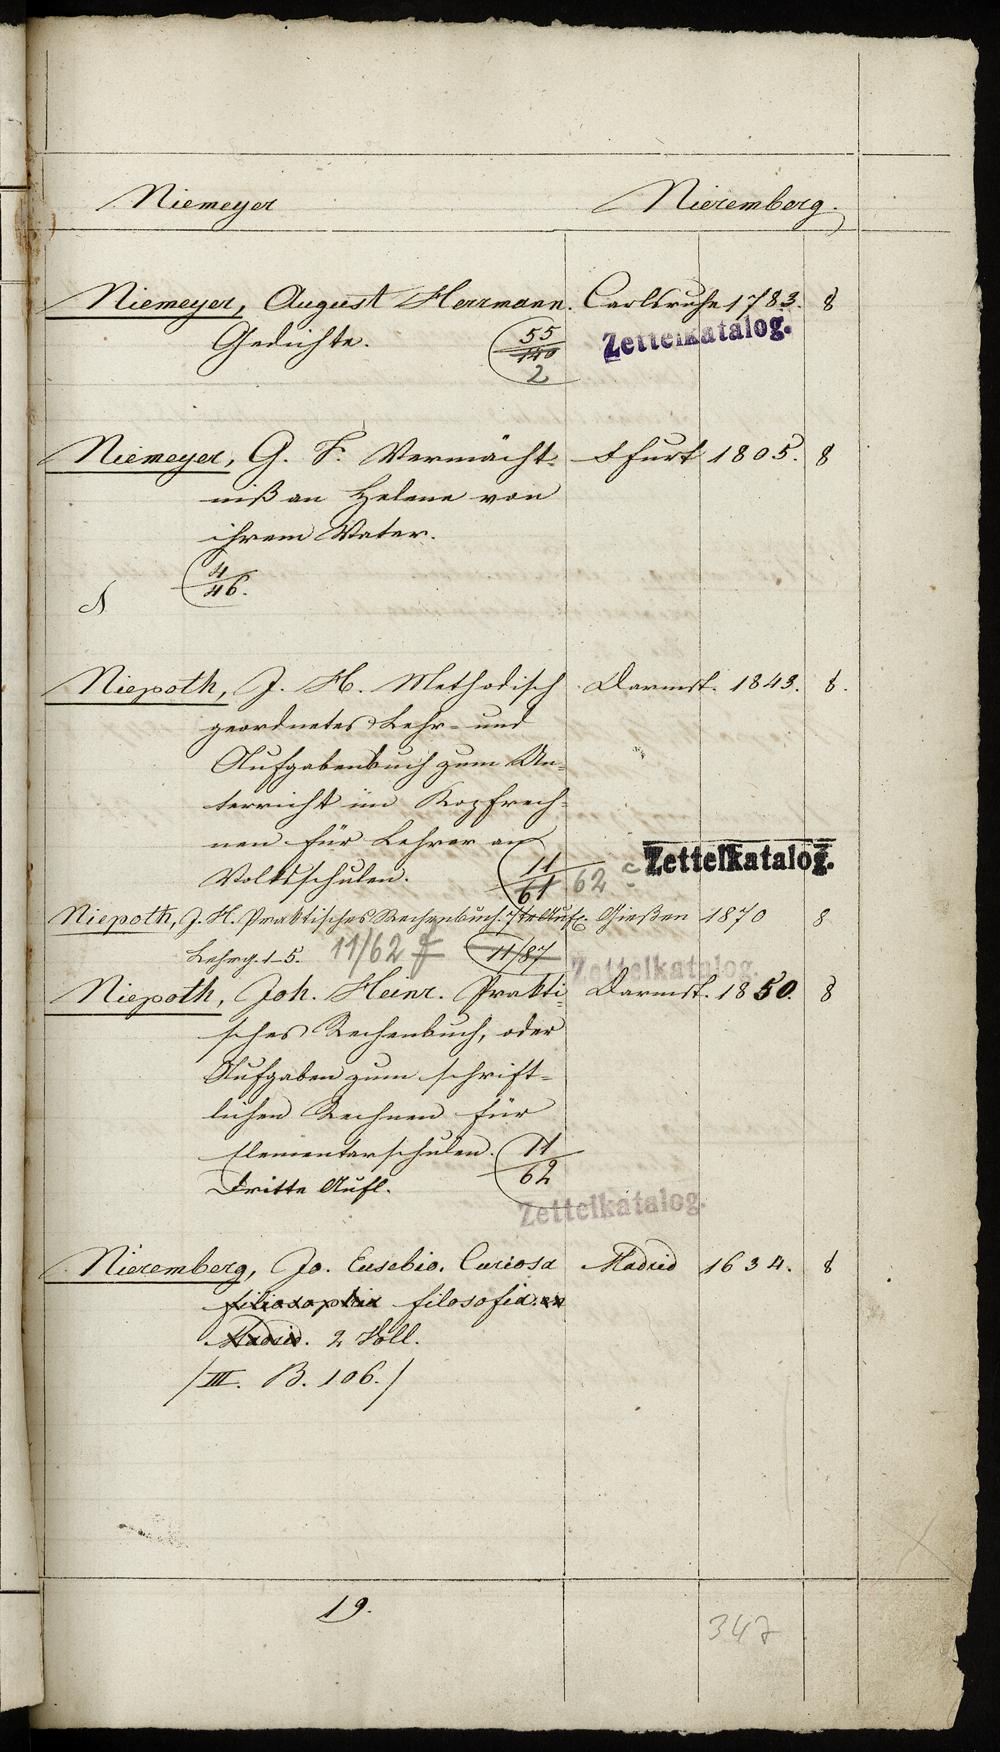 Niemeyer Nieremberg.
Niemeyer, August Herrmann. Carlsruhe 1783. 8
Gedichte. 55
140
2
Zettelkatalog.
Niemeyer, G. F. Vermächt- Ffurt 1805. 8
niß an Helene von
ihrem Vater.
4
46.
Niepoth, J. H. Methodisch Darmst. 1843. 8.
geordnetes Lehr- und
Aufgabenbuch zum Un-
terricht im Kopfrech-
nen für Lehrer an
Volksschulen. 11
61 62 c
Zettelkatalog.
Niepoth, J. H. Praktisches Rechenbuch. 7te Aufl. Gießen 1870 8
Lehrg. 1-5. 11/62 f 11/87
Zettelkatalog.
Niepoth, Joh. Heinr. Prakti- Darmst. 1850. 8
sches Rechenbuch, oder
Aufgaben zum schrift-
lichen Rechnen für
Elementarschulen. 11
62
Dritte Aufl.
Zettelkatalog.
Nieremberg, Jo. Eusebio. Curiosa Madrid 1634. 8
filosofia.
Madrid. 2 Voll.
/III. B. 106./
19.
347